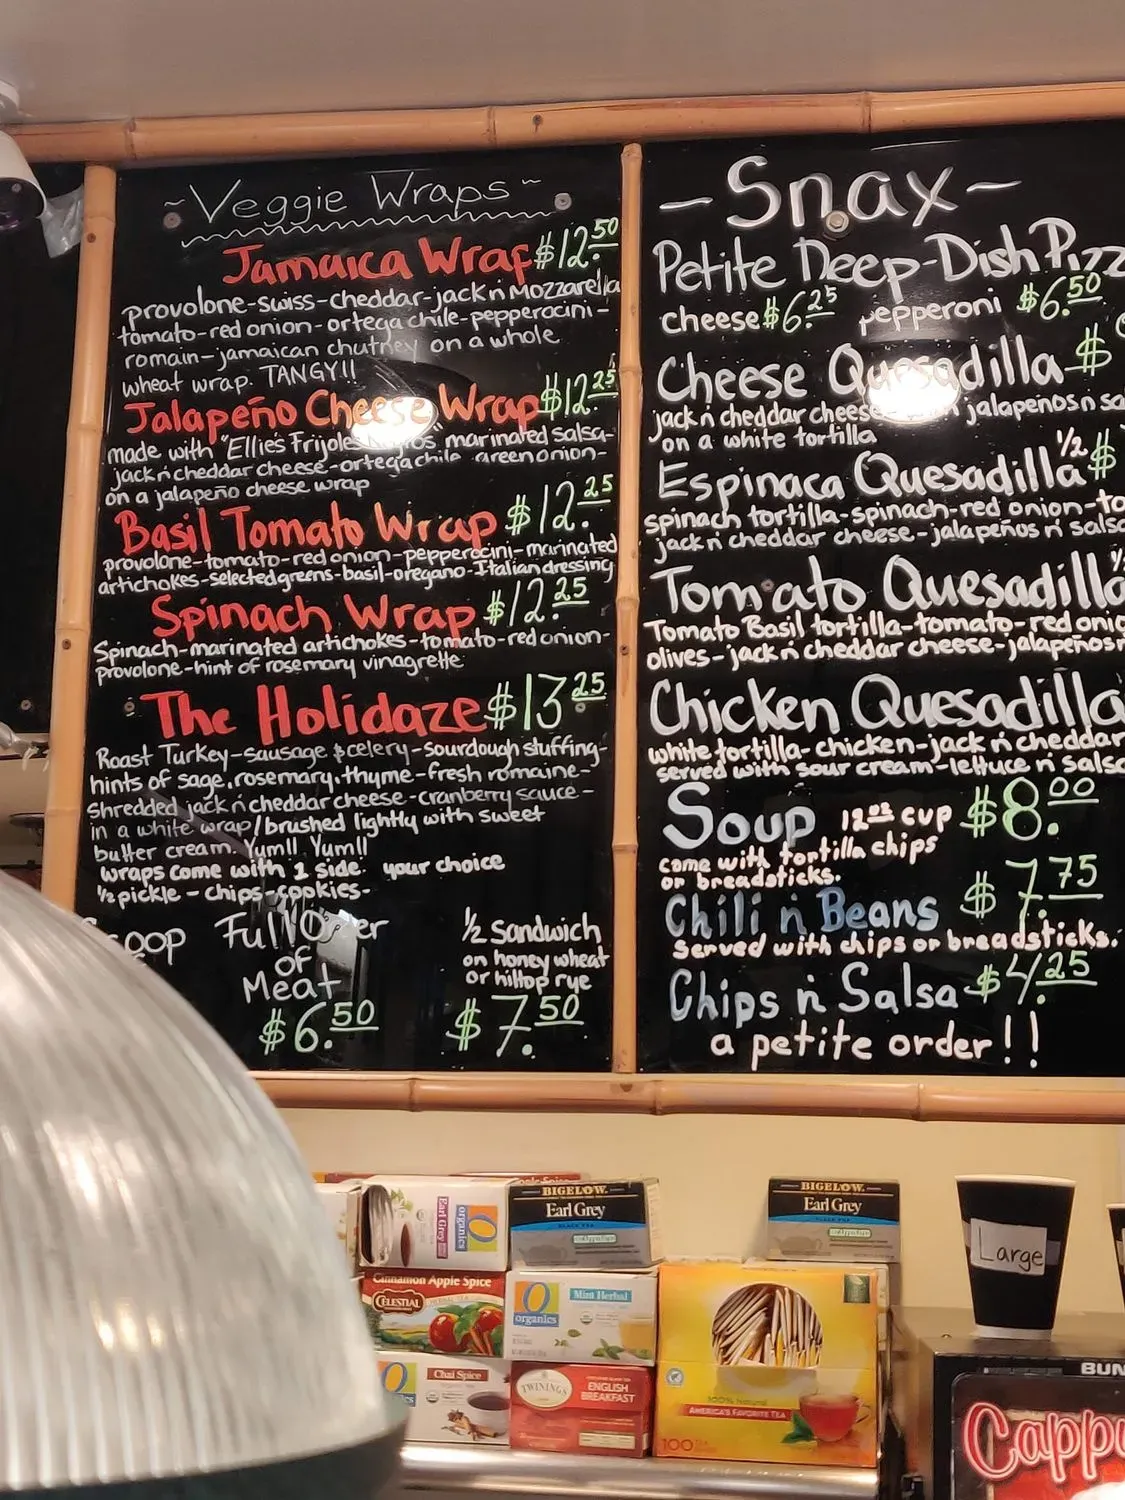 ~Veggie Wraps~
Jamaica Wrap $12.50
provolone-swiss-cheddar-jack n mozzarella
tomato-red onion-ortega chile-pepperocini-
romain-jamaican chutney on a whole
wheat wrap. TANGY!!
Jalapeño Cheese Wrap $12.25
made with "Ellie's Frijoles Negros" marinated salsa-
jack n cheddar cheese-ortega chile green onion-
on a jalapeño cheese wrap
Basil Tomato Wrap $12.25
provolone-tomato-red onion-pepperocini-marinated
artichokes-selected greens-basil-oregano-Italian dressing
Spinach Wrap $12.25
Spinach-marinated artichokes-tomato-red onion-
provolone-hint of rosemary vinagrette
The Holidaze $13.25
Roast Turkey-sausage & celery-sourdough stuffing-
hints of sage, rosemary, thyme-fresh romaine-
shredded jack n cheddar cheese-cranberry sauce-
in a white wrap/brushed lightly with sweet
butter cream Yum!! Yum!!
wraps come with 1 side. your choice
1/2 pickle - chips-cookies-
Scoop
Full Order
of
Meat
$6.50
1/2 Sandwich
on honey wheat
or hilltop rye
$7.50
-Snax-
Petite Deep-Dish Pizz
cheese $6.25 pepperoni $6.50
Cheese Quesadilla $
jack n cheddar cheese jalapenos n sa
on a white tortilla
Espinaca Quesadilla 1/2 $
spinach tortilla-spinach-red onion-to
jack n cheddar cheese-jalapeños n salsa
Tomato Quesadilla
Tomato Basil tortilla-tomato-red onio
olives-jack n cheddar cheese-jalapeños n
Chicken Quesadilla
white tortilla-chicken-jack n cheddar
served with sour cream-lettuce n salsa
Soup 12oz cup $8.00
come with tortilla chips
or breadsticks.
Chili n Beans $7.75
served with chips or breadsticks.
Chips n Salsa $4.25
a petite order!!
Earl Grey
organics
BIGELOW
Earl Grey
BLACK TEA
BIGELOW
Earl Grey
Large
Cinnamon Apple Spice
CELESTIAL
HERBAL TEA
O
organics
Mint Herbal
Chai Spice
TWININGS
ENGLISH
BREAKFAST
100% Natural
AMERICA'S FAVORITE TEA
100 TEA
BUN
Cappu